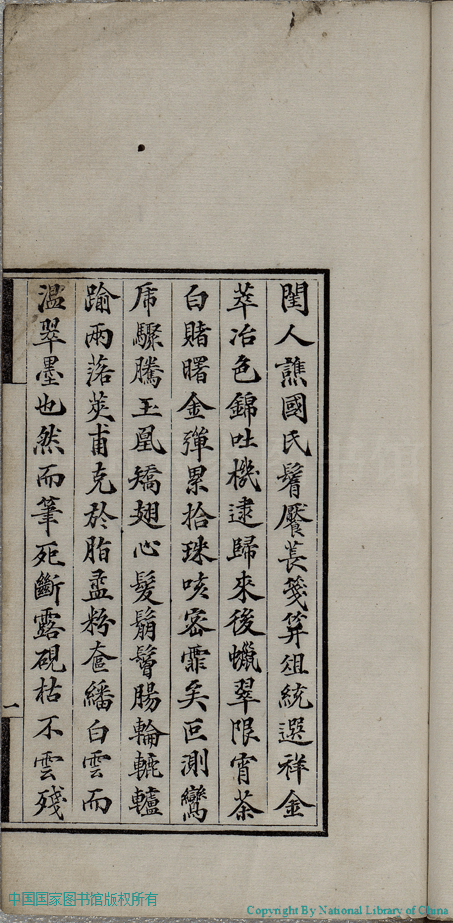 閨人譙國氏鬌饜萇箋笄俎統選祥金
萃冶色錦吐機逮歸來後蠟翠限宵茶
白賭曙金彈累拾珠咳密霏矣叵測鸞
乕驟騰玉凰矯翅心髮鬅鬙腸輪轆轤
踰兩落莢甫克於脂盝粉奩繙白雲而
溫翠墨也然而筆死斷露硯枯不雲殘
一
中国国家图书馆版权所有
Copyright By National Library of China